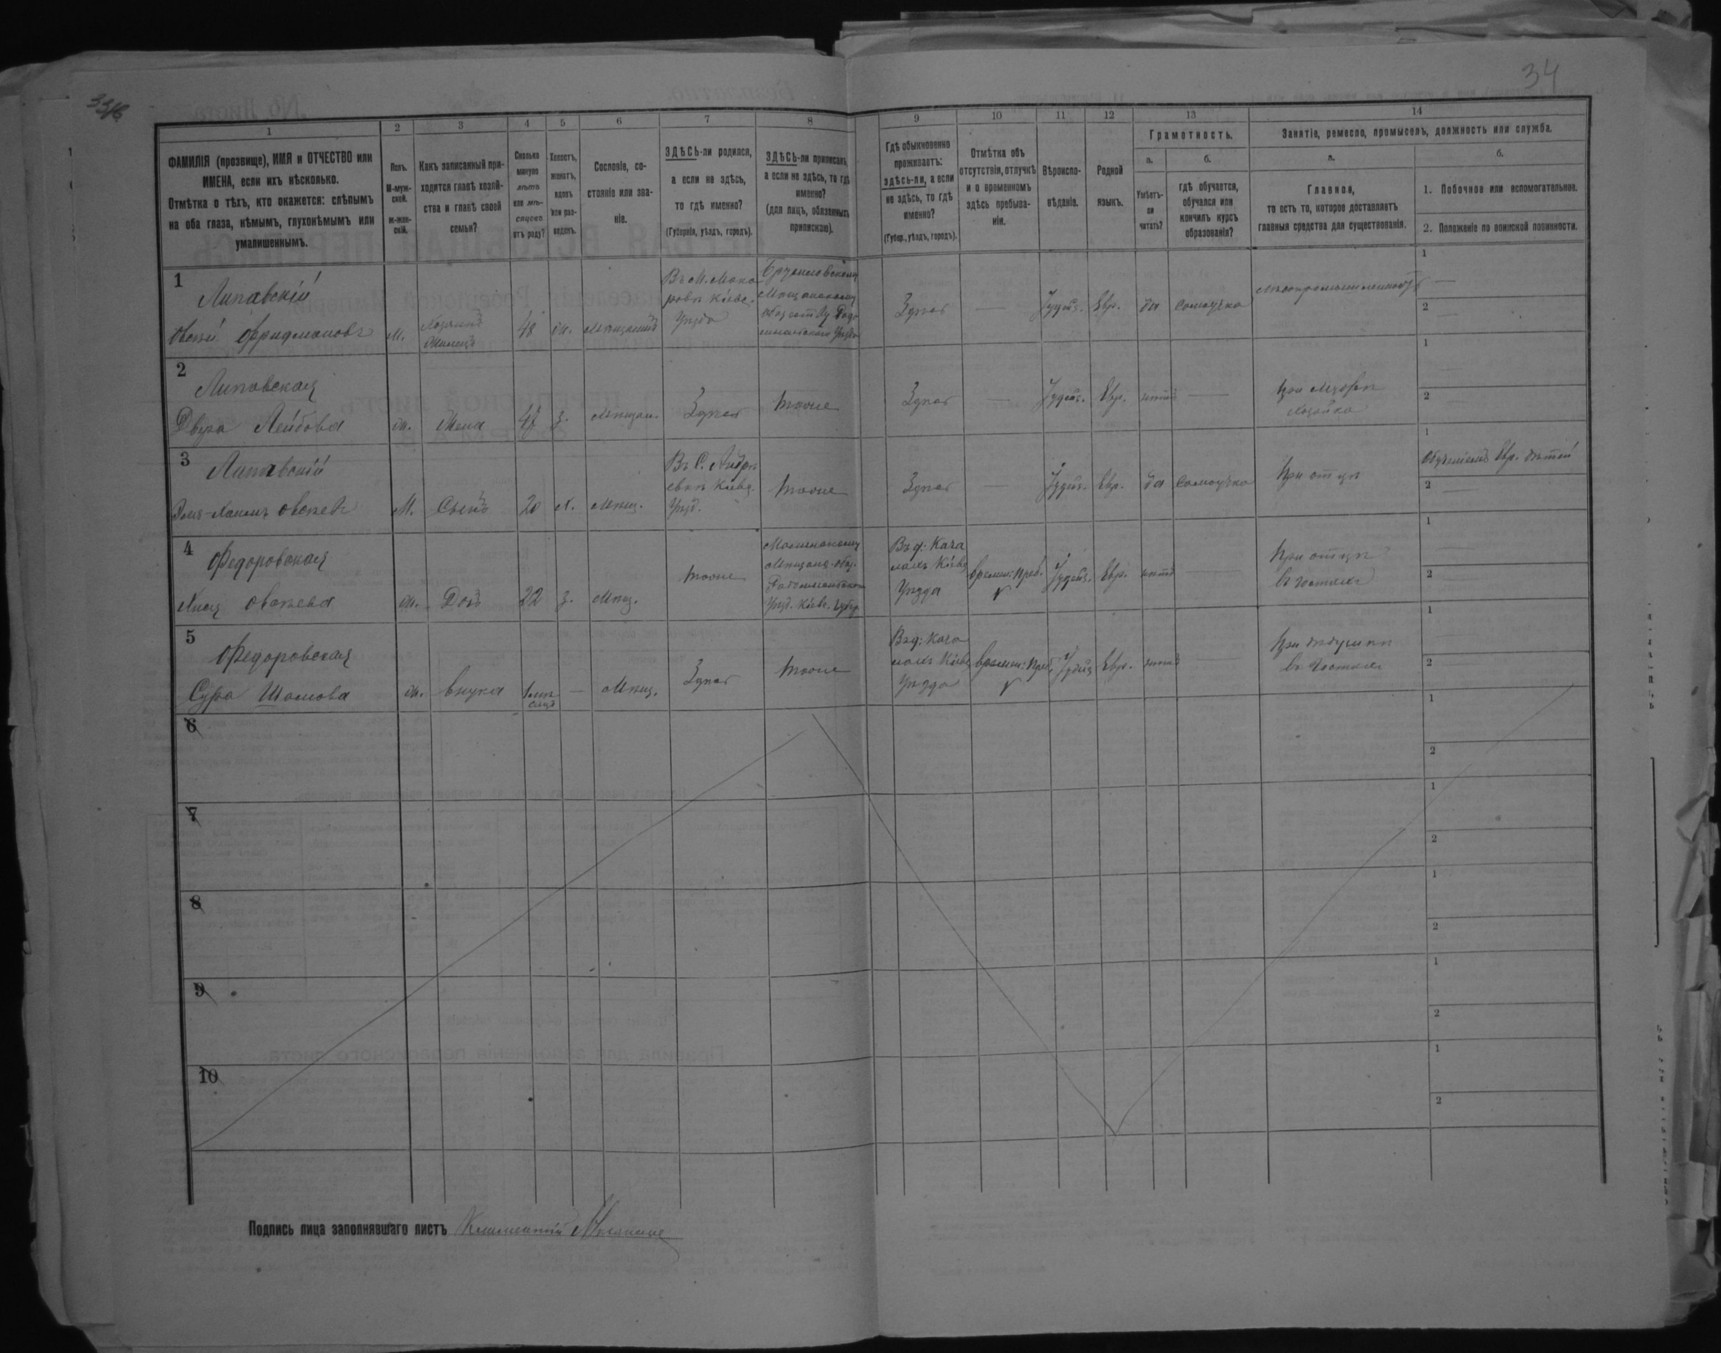 34
1
2
3
4
5
6
7
8
9
10
11
12
13
14
ФАМИЛІЯ (прозвище), ИМЯ и ОТЧЕСТВО или
ИМЕНА, если ихъ нѣсколько.
Отмѣтка о тѣхъ, кто окажется: слѣпымъ
на оба глаза, нѣмымъ, глухонѣмымъ или
умалишеннымъ.
Полъ.
М-муж-
ской.
ж-жен-
скій.
Какъ записанный при-
ходится главѣ хозяй-
ства и главѣ своей
семьи?
Сколько
минуло
лѣтъ
или мѣ-
сяцевъ
отъ роду?
Холостъ,
женатъ,
вдовъ
или раз-
веденъ.
Сословіе, со-
стояніе или зва-
ніе.
ЗДѢСЬ-ли родился,
а если не здѣсь,
то гдѣ именно?
(Губернія, уѣздъ, городъ).
ЗДѢСЬ-ли приписанъ,
а если не здѣсь, то гдѣ
именно?
(для лицъ, обязанныхъ
припискою).
Гдѣ обыкновенно
проживаетъ:
здѣсь-ли, а если
не здѣсь, то гдѣ
именно?
(Губер., уѣздъ, городъ).
Отмѣтка объ
отсутствіи, отлучкѣ
и о временномъ
здѣсь пребыва-
ніи.
Вѣроиспо-
вѣданіе.
Родной
языкъ.
Грамотность.
а.
Умѣетъ-
ли
читать?
б.
гдѣ обучается,
обучался или
кончилъ курсъ
образованія?
Занятіе, ремесло, промыселъ, должность или служба.
а.
Главное,
то есть то, которое доставляетъ
главныя средства для существованія.
б.
1. Побочное или вспомогательное.
2. Положеніе по воинской повинности.
1
Липавскій
Овсій Фридмановъ
М.
Хозяинъ
48
Мѣщанинъ
Въ М. Мака
ровѣ Кіевс.
Уѣзда
Брусиловскому
Мѣщанскому
Здѣсь
Іудейс.
Евр.
да
самоучка
1
2
2
Липовская
Двера Лейбова
ж.
Жена
47
з.
Мѣщан.
Здѣсь
тоже
Здѣсь
Іудейс.
Евр.
нѣтъ
хозяйка
1
2
3
Липавскій
Овсѣевъ
М.
Сынъ
20
х.
Мѣщ.
Въ С. Андре
евкѣ Кіевс.
Уѣзд.
тоже
Здѣсь
Іудейс.
Евр.
да
самоучка
При отцѣ
1
Обученіемъ Евр. дѣтей
2
4
Федоровская
Овсѣева
ж.
Дочь
22
з.
Мѣщ.
тоже
Уѣзд. Кіевс. губер.
Въ д. Кача
лахъ Кіевс.
Уѣзда
времен. преб.
Іудейс.
Евр.
нѣтъ
При отцѣ
въ гостяхъ
1
2
5
Федоровская
Сура Шаомова
ж.
внука
1 мѣ
сяцъ
Мѣщ.
Здѣсь
тоже
Въ д. Кача
лахъ Кіевс.
Уѣзда
времен. преб.
Іудейс.
Евр.
нѣтъ
При дѣдушкѣ
въ гостяхъ
1
2
6
1
2
7
1
2
8
1
2
9
1
2
10
1
2
Подпись лица заполнявшаго листъ